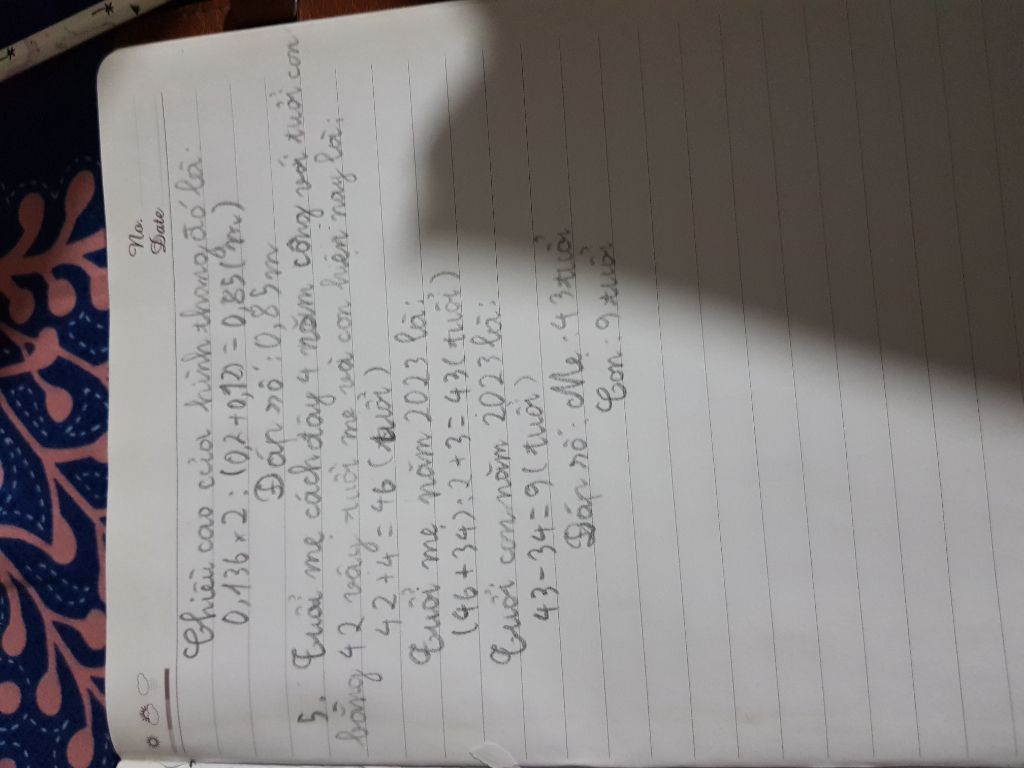 No.
Date
Chiều cao của hình thang đó là:
0,136 x 2 : (0,2 + 0,12) = 0,85 (m)
Đáp số : 0,85m
5. Tuổi mẹ cách đây 4 năm cộng với tuổi con
bằng 42 vậy tuổi mẹ và con hiện nay là:
42 + 4 = 46 (tuổi)
Tuổi mẹ năm 2023 là:
(46 + 34) : 2 + 3 = 43 (tuổi)
Tuổi con năm 2023 là:
43 - 34 = 9 (tuổi)
Đáp số : Mẹ : 43 tuổi
Con : 9 tuổi